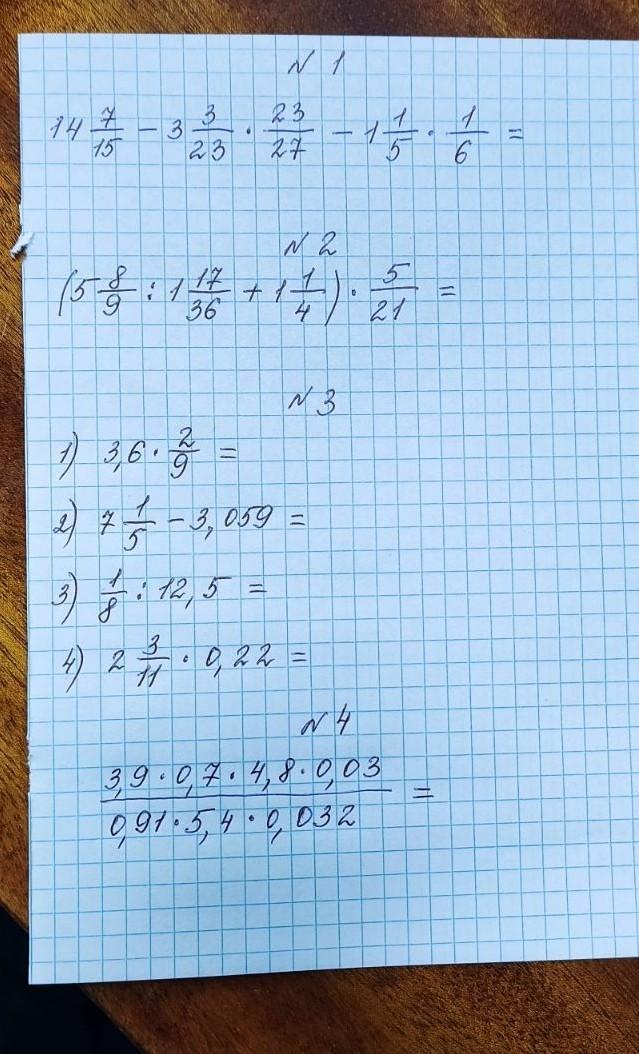 N 1
14 7/15 - 3 3/23 · 23/27 - 1 1/5 · 1/6 =
N 2
(5 8/9 : 1 17/36 + 1 1/4) · 5/21 =
N 3
1) 3,6 · 2/9 =
2) 7 1/5 - 3,059 =
3) 1/8 : 12,5 =
4) 2 3/11 · 0,22 =
N 4
3,9 · 0,7 · 4,8 · 0,03 =
0,91 · 5,4 · 0,032